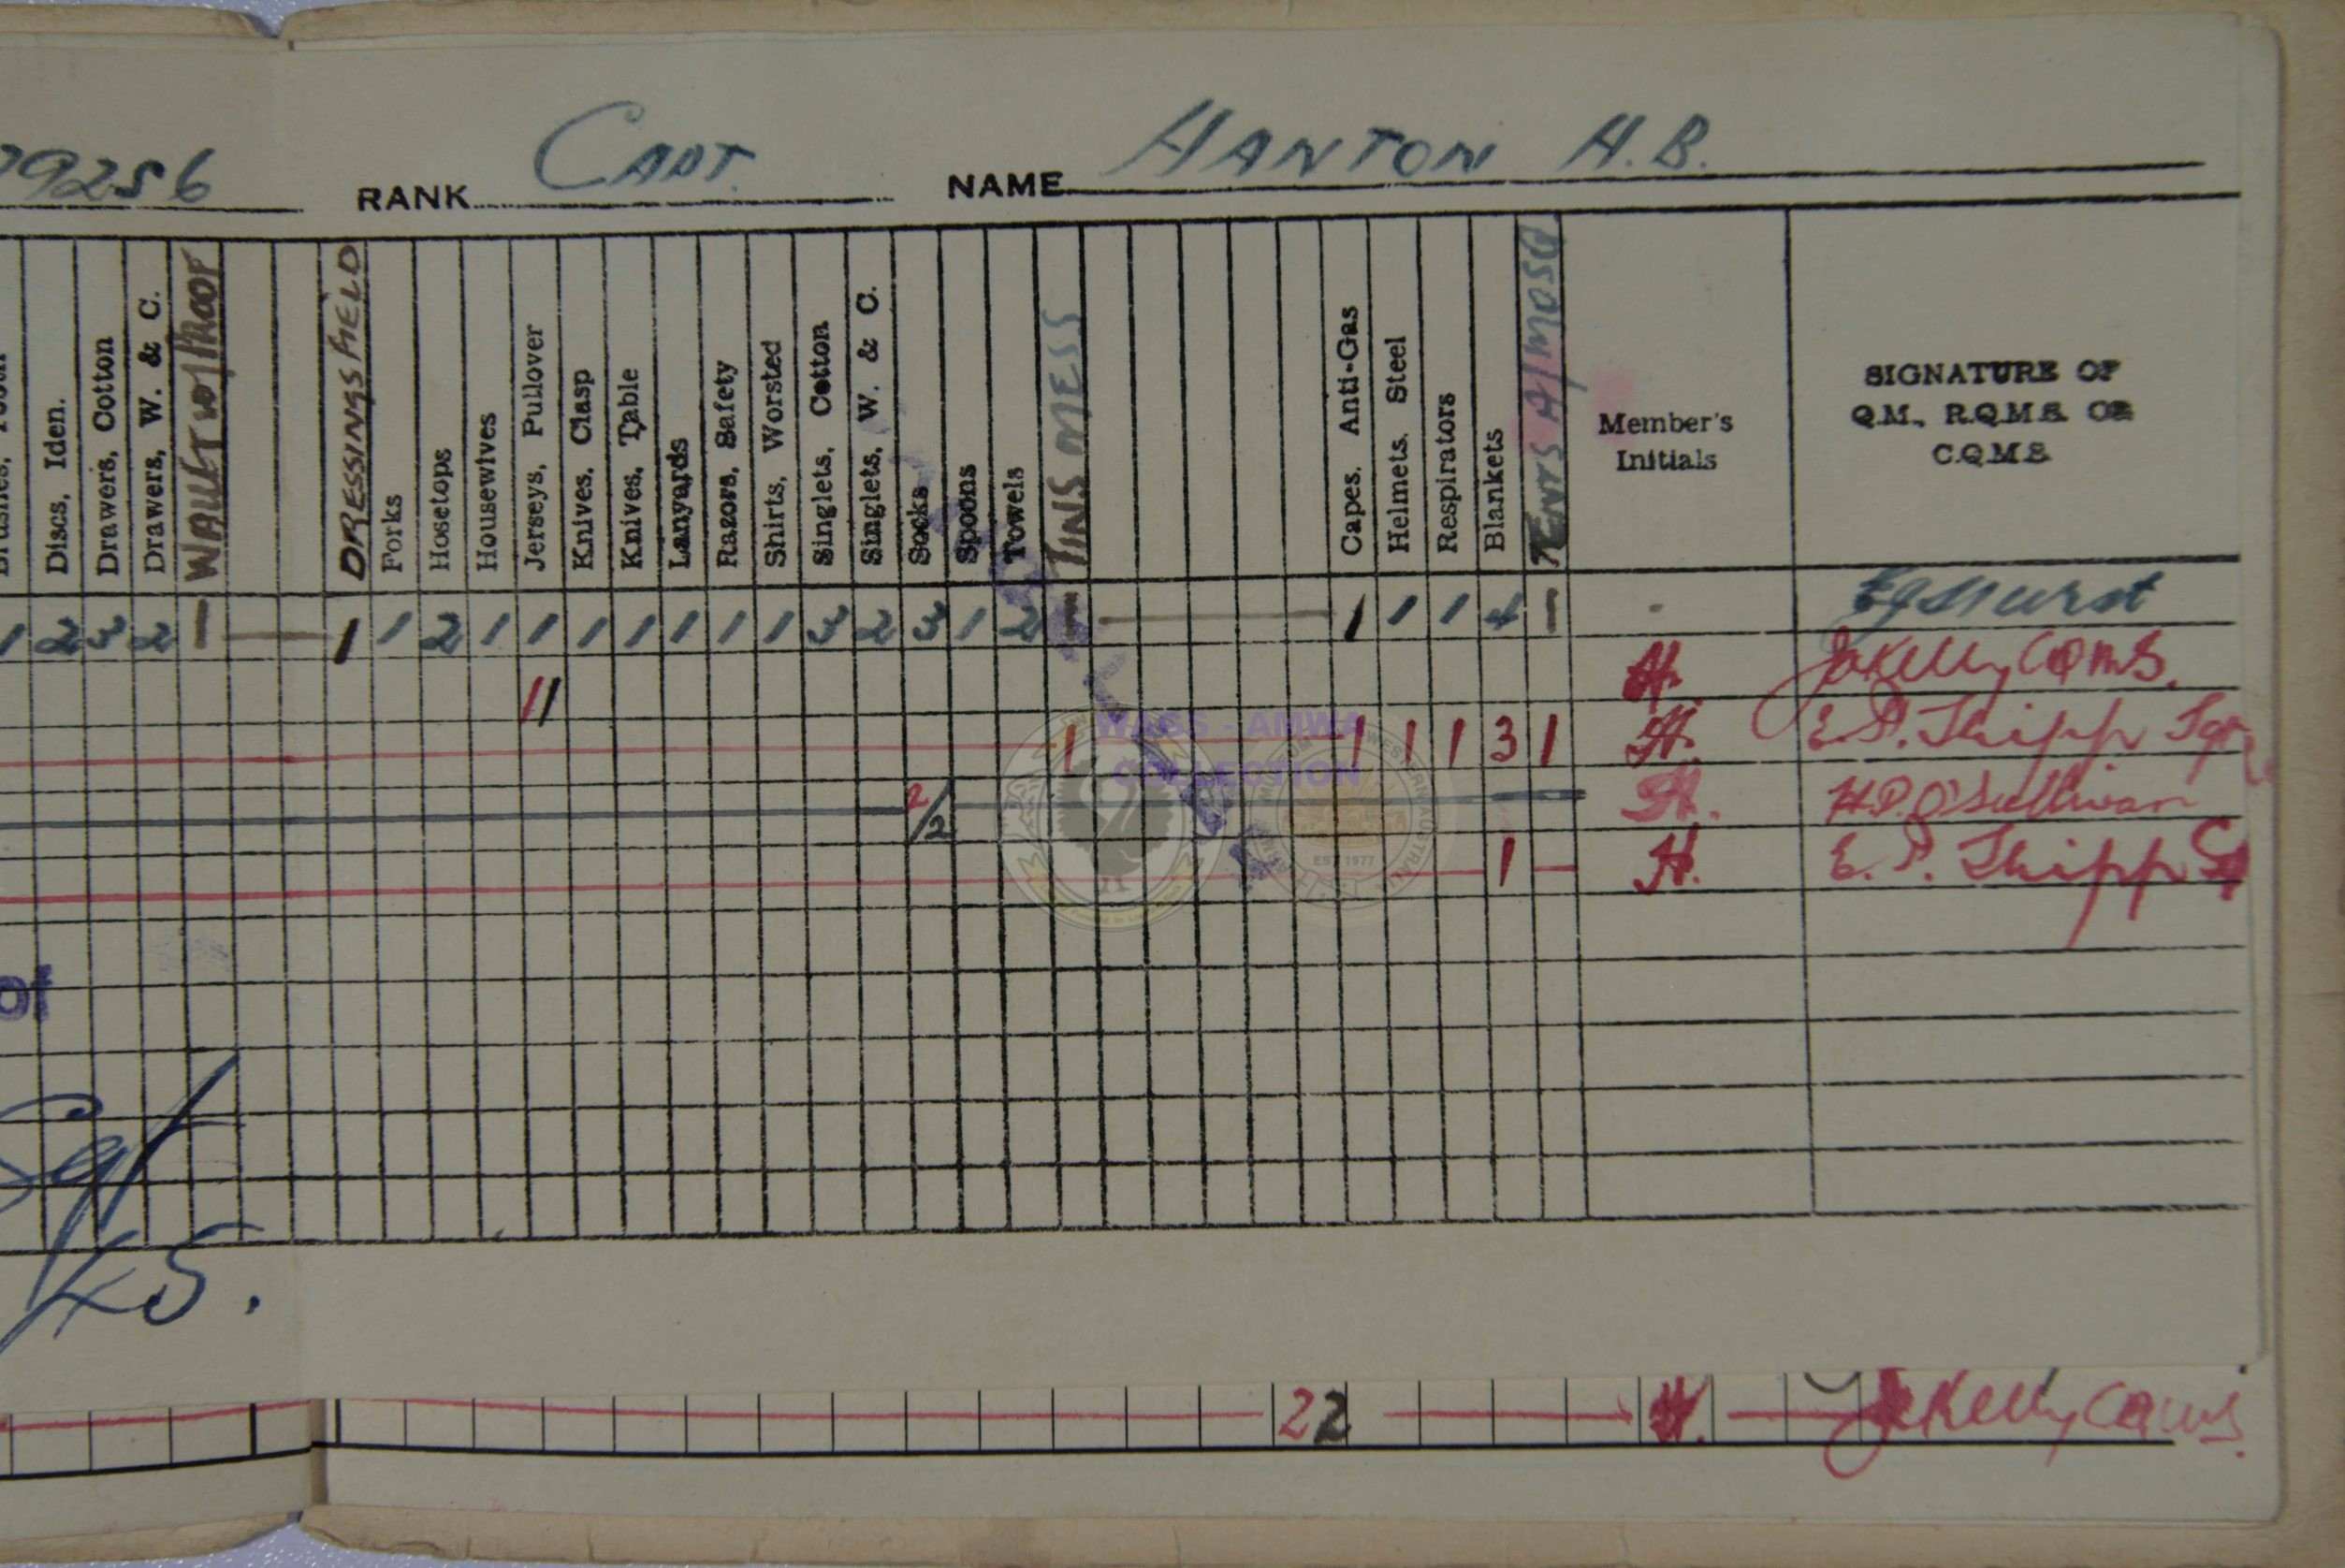 79256 RANK CAPT. NAME HANTON H.B.
Discs, Iden.
Drawers, Cotton
Drawers, W. & C.
WALLET W/PROOF
DRESSINGS FIELD
Forks
Hosetops
Housewives
Jerseys, Pullover
Knives, Clasp
Knives, Table
Lanyards
Razors, Safety
Shirts, Worsted
Singlets, Cotton
Singlets, W. & C.
Socks
Spoons
Towels
TINS MESS
Capes, Anti-Gas
Helmets, Steel
Respirators
Blankets
Member's
Initials
SIGNATURE OF
Q.M., R.Q.M.S. OR
C.Q.M.S.
1 2 3 2 — — 1 1 2 1 1 1 1 1 1 1 3 2 3 1 2 — — 1 1 1 4 —
11 H. JKelly CQMS.
1 1 1 1 3 1 H. E.P. Thipp
2/2 H. H.P. O'Sullivan
1 — H. E. P. Thipp
WASS - AMWA
COLLECTION
EST 1977
of
Sgt
/45.
22 H. JKelly CQMS.